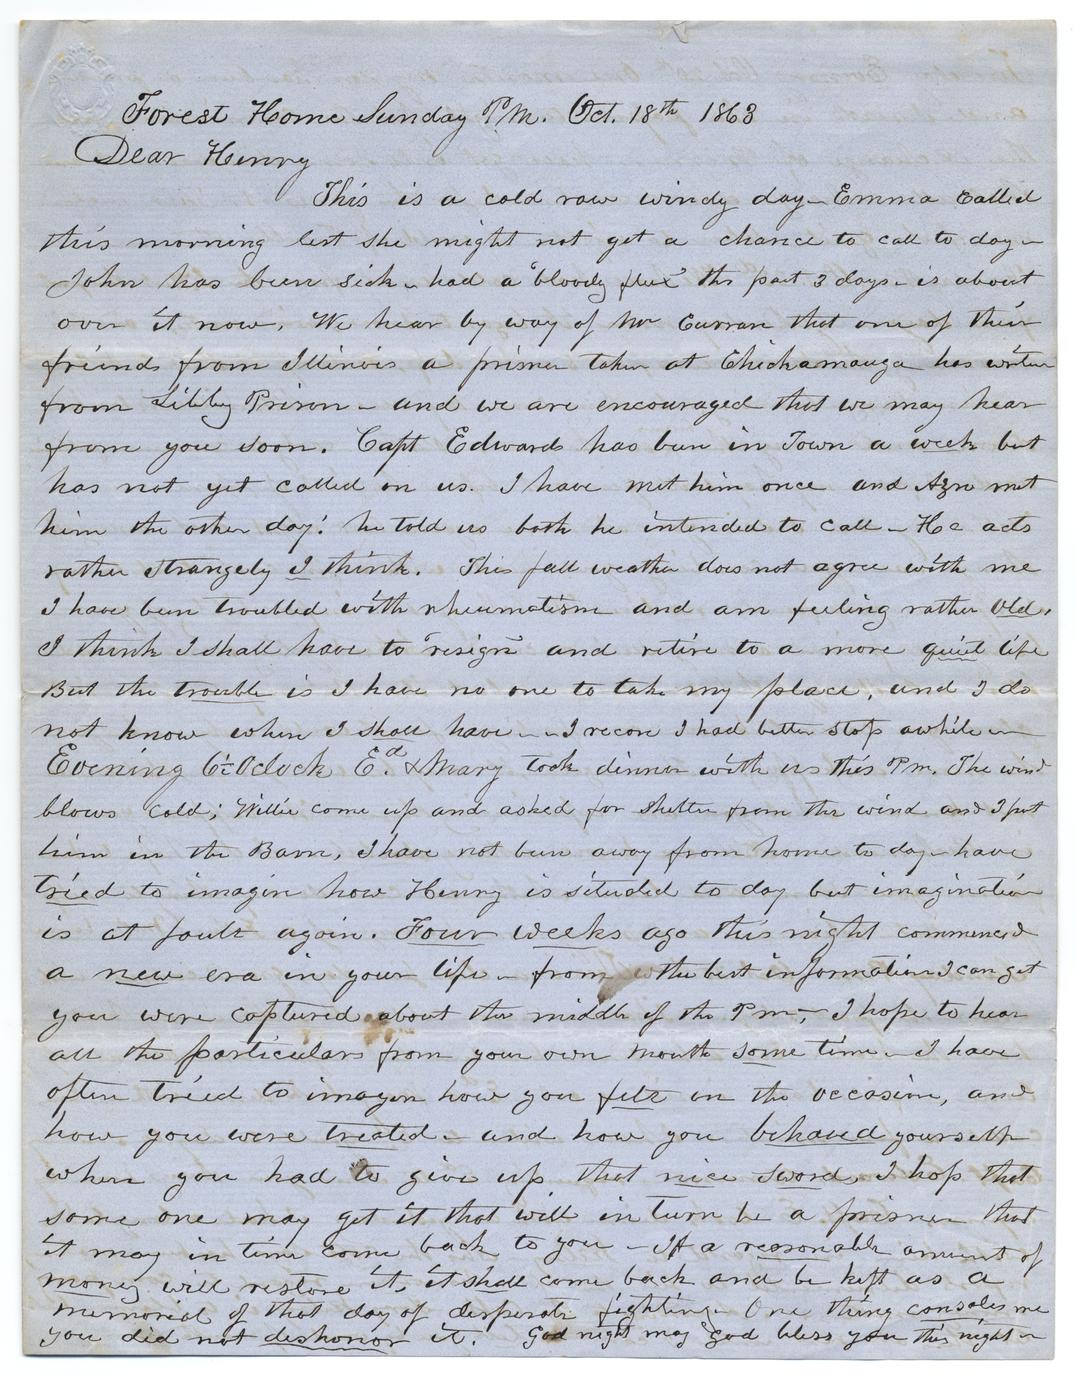 Forest Home Sunday P.M. Oct. 18th 1863
Dear Henry
This is a cold raw windy day - Emma called
this morning lest she might not get a chance to call to day -
John has been sick - had a "bloody flux" the past 3 days - is about
over it now. We hear by way of Mr Curran that one of their
friends from Illinois a prisner taken at Chickamauga has writen
from Libby Prison - and we are encouraged that we may hear
from you soon. Capt Edwards has been in Town a week but
has not yet called on us. I have met him once and Azro met
him the other day! he told us both he intended to call - He acts
rather strangely I think. This fall weather does not agree with me
I have been troubled with rheumatism and am feeling rather Old,
I think I shall have to "resign" and retire to a more quiet life
But the trouble is I have no one to take my place, and I do
not know when I shall have - - I recon I had better stop awhile -
Evening 6 O'Clock Ed. & Mary took dinner with us this P.m. The wind
blows cold; Willie come up and asked for shelter from the wind and I put
him in the Barn, I have not been away from home to day - have
tried to imagin how Henry is situded to day but imagination
is at fault again. Four weeks ago this night commenced
a new era in your life - from the best information I can get
you were captured about the middle of the P m; - I hope to hear
all the particulars from your own mouth some time - I have
often tried to imagen how you felt on the occasion, and
how you were treated - and how you behaved yourself
when you had to give up that nice sword. I hop that
some one may get it that will in turn be a prisner that
it may in time come back to you - If a reasonable amount of
money will restore it, it shall come back and be kept as a
memorial of that day of desperate fighting. One thing consoles me
you did not dishonor it! God night may God bless you this night -